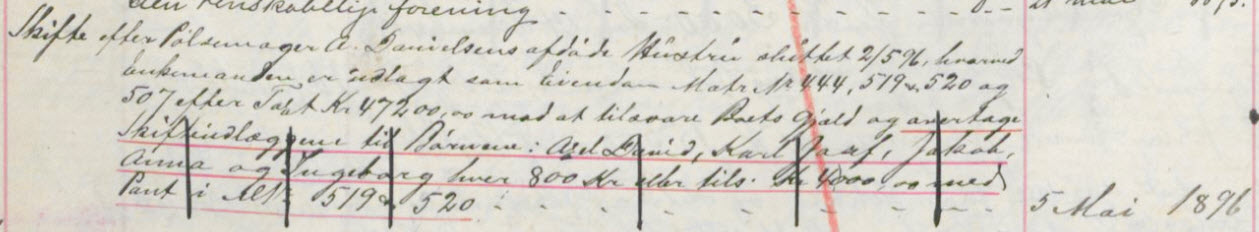 den Renskabelige forening - - - - - - - - 21 Mai
Skifte efter Pølsemager A. Danielsens afdøde Hustru sluttet 2/5 96, hvorved
enkemanden er udlagt som eiendom Matr No 444, 519 & 520 og
507 efter Taxt Kr 47200,00 mod at tilsvare Boets Gjæld og overtage
Skifteudlæggene til Børnene: Axel David, Karl Josef, Jakob,
Anna og Ingeborg hver 800 Kr eller tils. Kr 4000,00 med
Pant i MNr 519 & 520 - - - - - - - - 5 Mai 1896